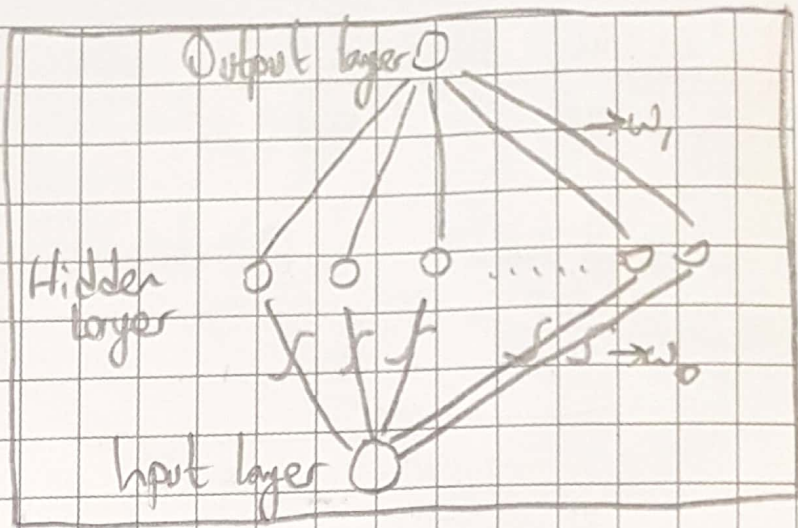 Output layer
→ w₁
Hidden
layer
.....
→ w₀
Input layer